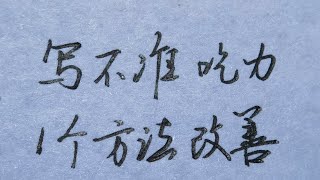 写不准吃力
1个方法改善